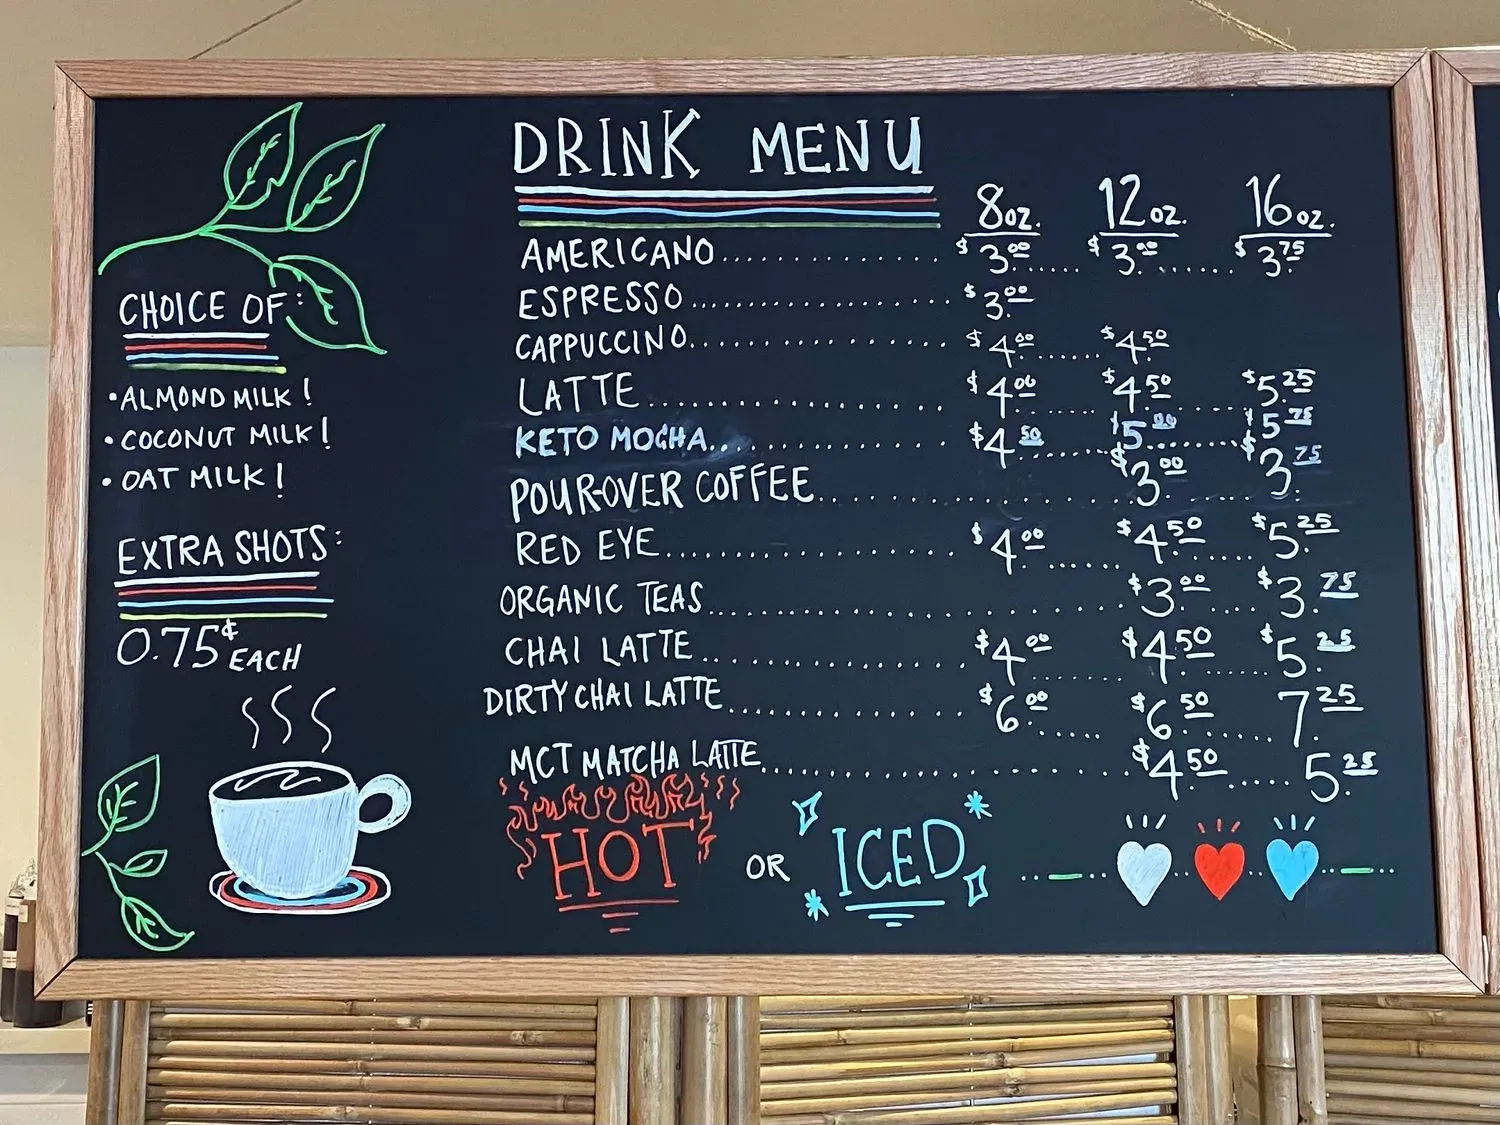 DRINK MENU
8oz. 12oz. 16oz.
AMERICANO $3.00 $3.00 $3.75
ESPRESSO $3.00
CAPPUCCINO $4.00 $4.50
LATTE $4.00 $4.50 $5.25
KETO MOCHA $4.50 $5.00 $5.75
POUR-OVER COFFEE $3.00 $3.75
RED EYE $4.00 $4.50 $5.25
ORGANIC TEAS $3.00 $3.75
CHAI LATTE $4.00 $4.50 $5.25
DIRTY CHAI LATTE $6.00 $6.50 7.25
MCT MATCHA LATTE $4.50 5.25
HOT OR ICED
CHOICE OF:
• ALMOND MILK!
• COCONUT MILK!
• OAT MILK!
EXTRA SHOTS:
0.75¢ EACH